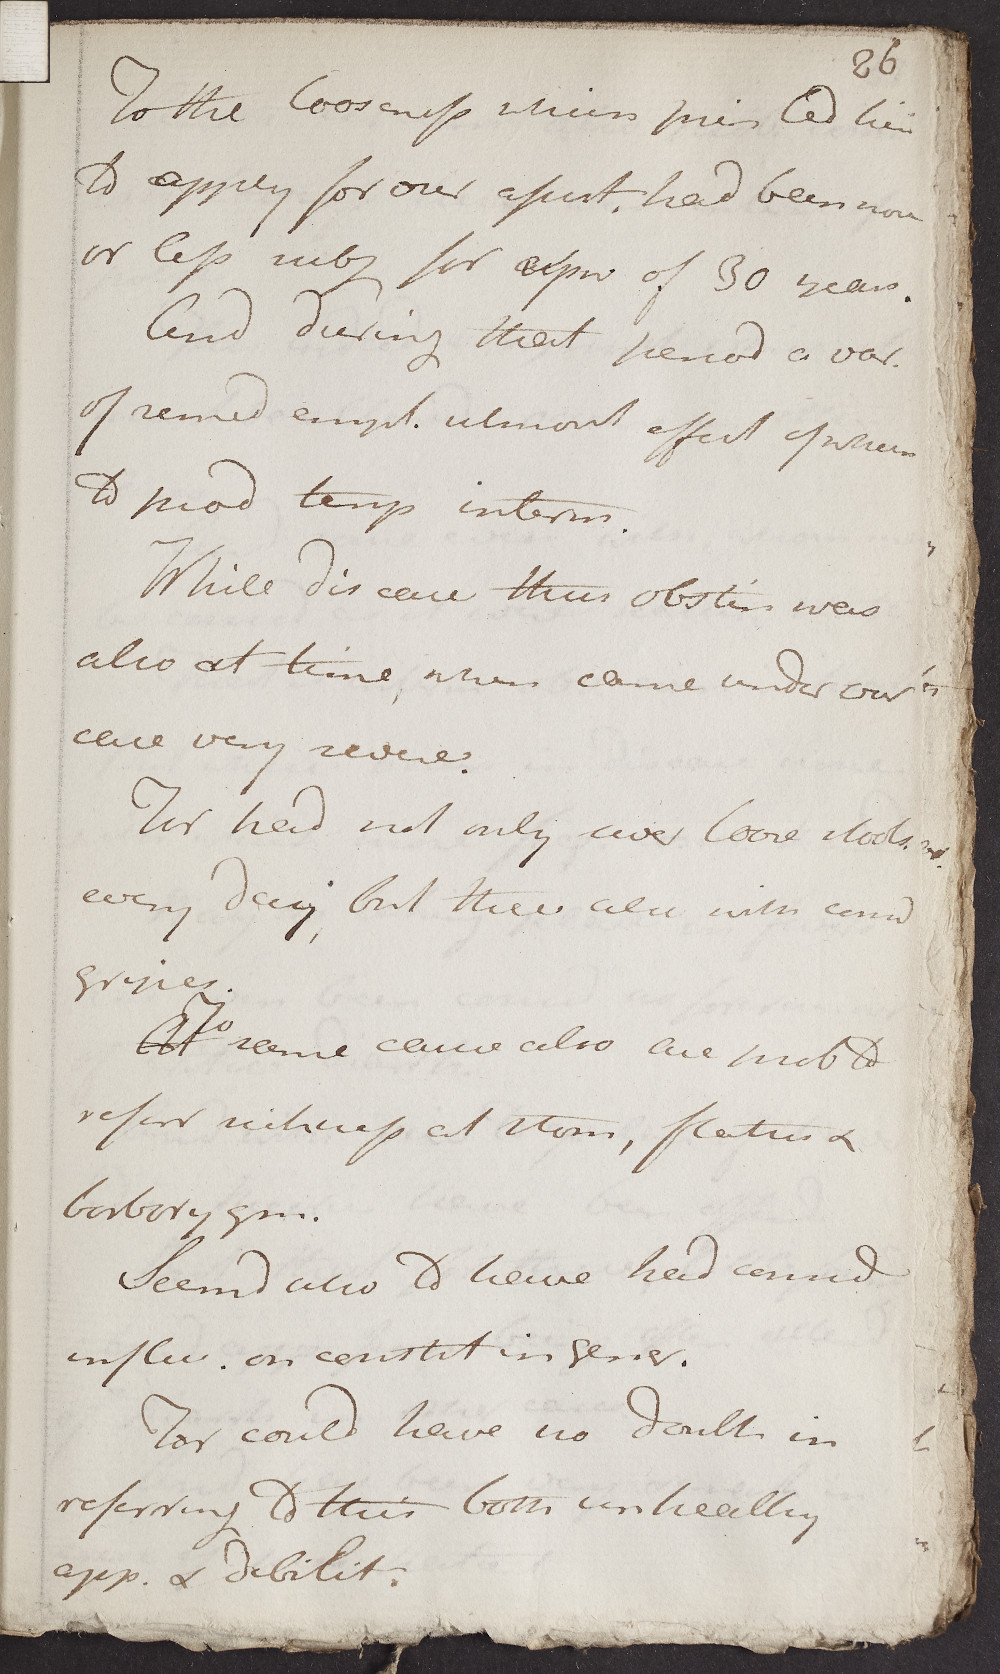 26
To the looseness which prin led him
to apply for our assist. had been more
or less subj for expn of 30 years.
And during that period a var.
of remed empl. utmost effect of which
to prod temp interm.
While disease thus obstin was
also at time, when came under our
care very severe.
For had not only over loose stools
every day, but these also with consid
gripes.
To same cause also are prob to
referr sickness at stom, flatus &
borborygm.
Seem'd also to have had consid
influ. on constit in gener.
For could have no doubt in
referring to this both unhealthy
app. & debilit.